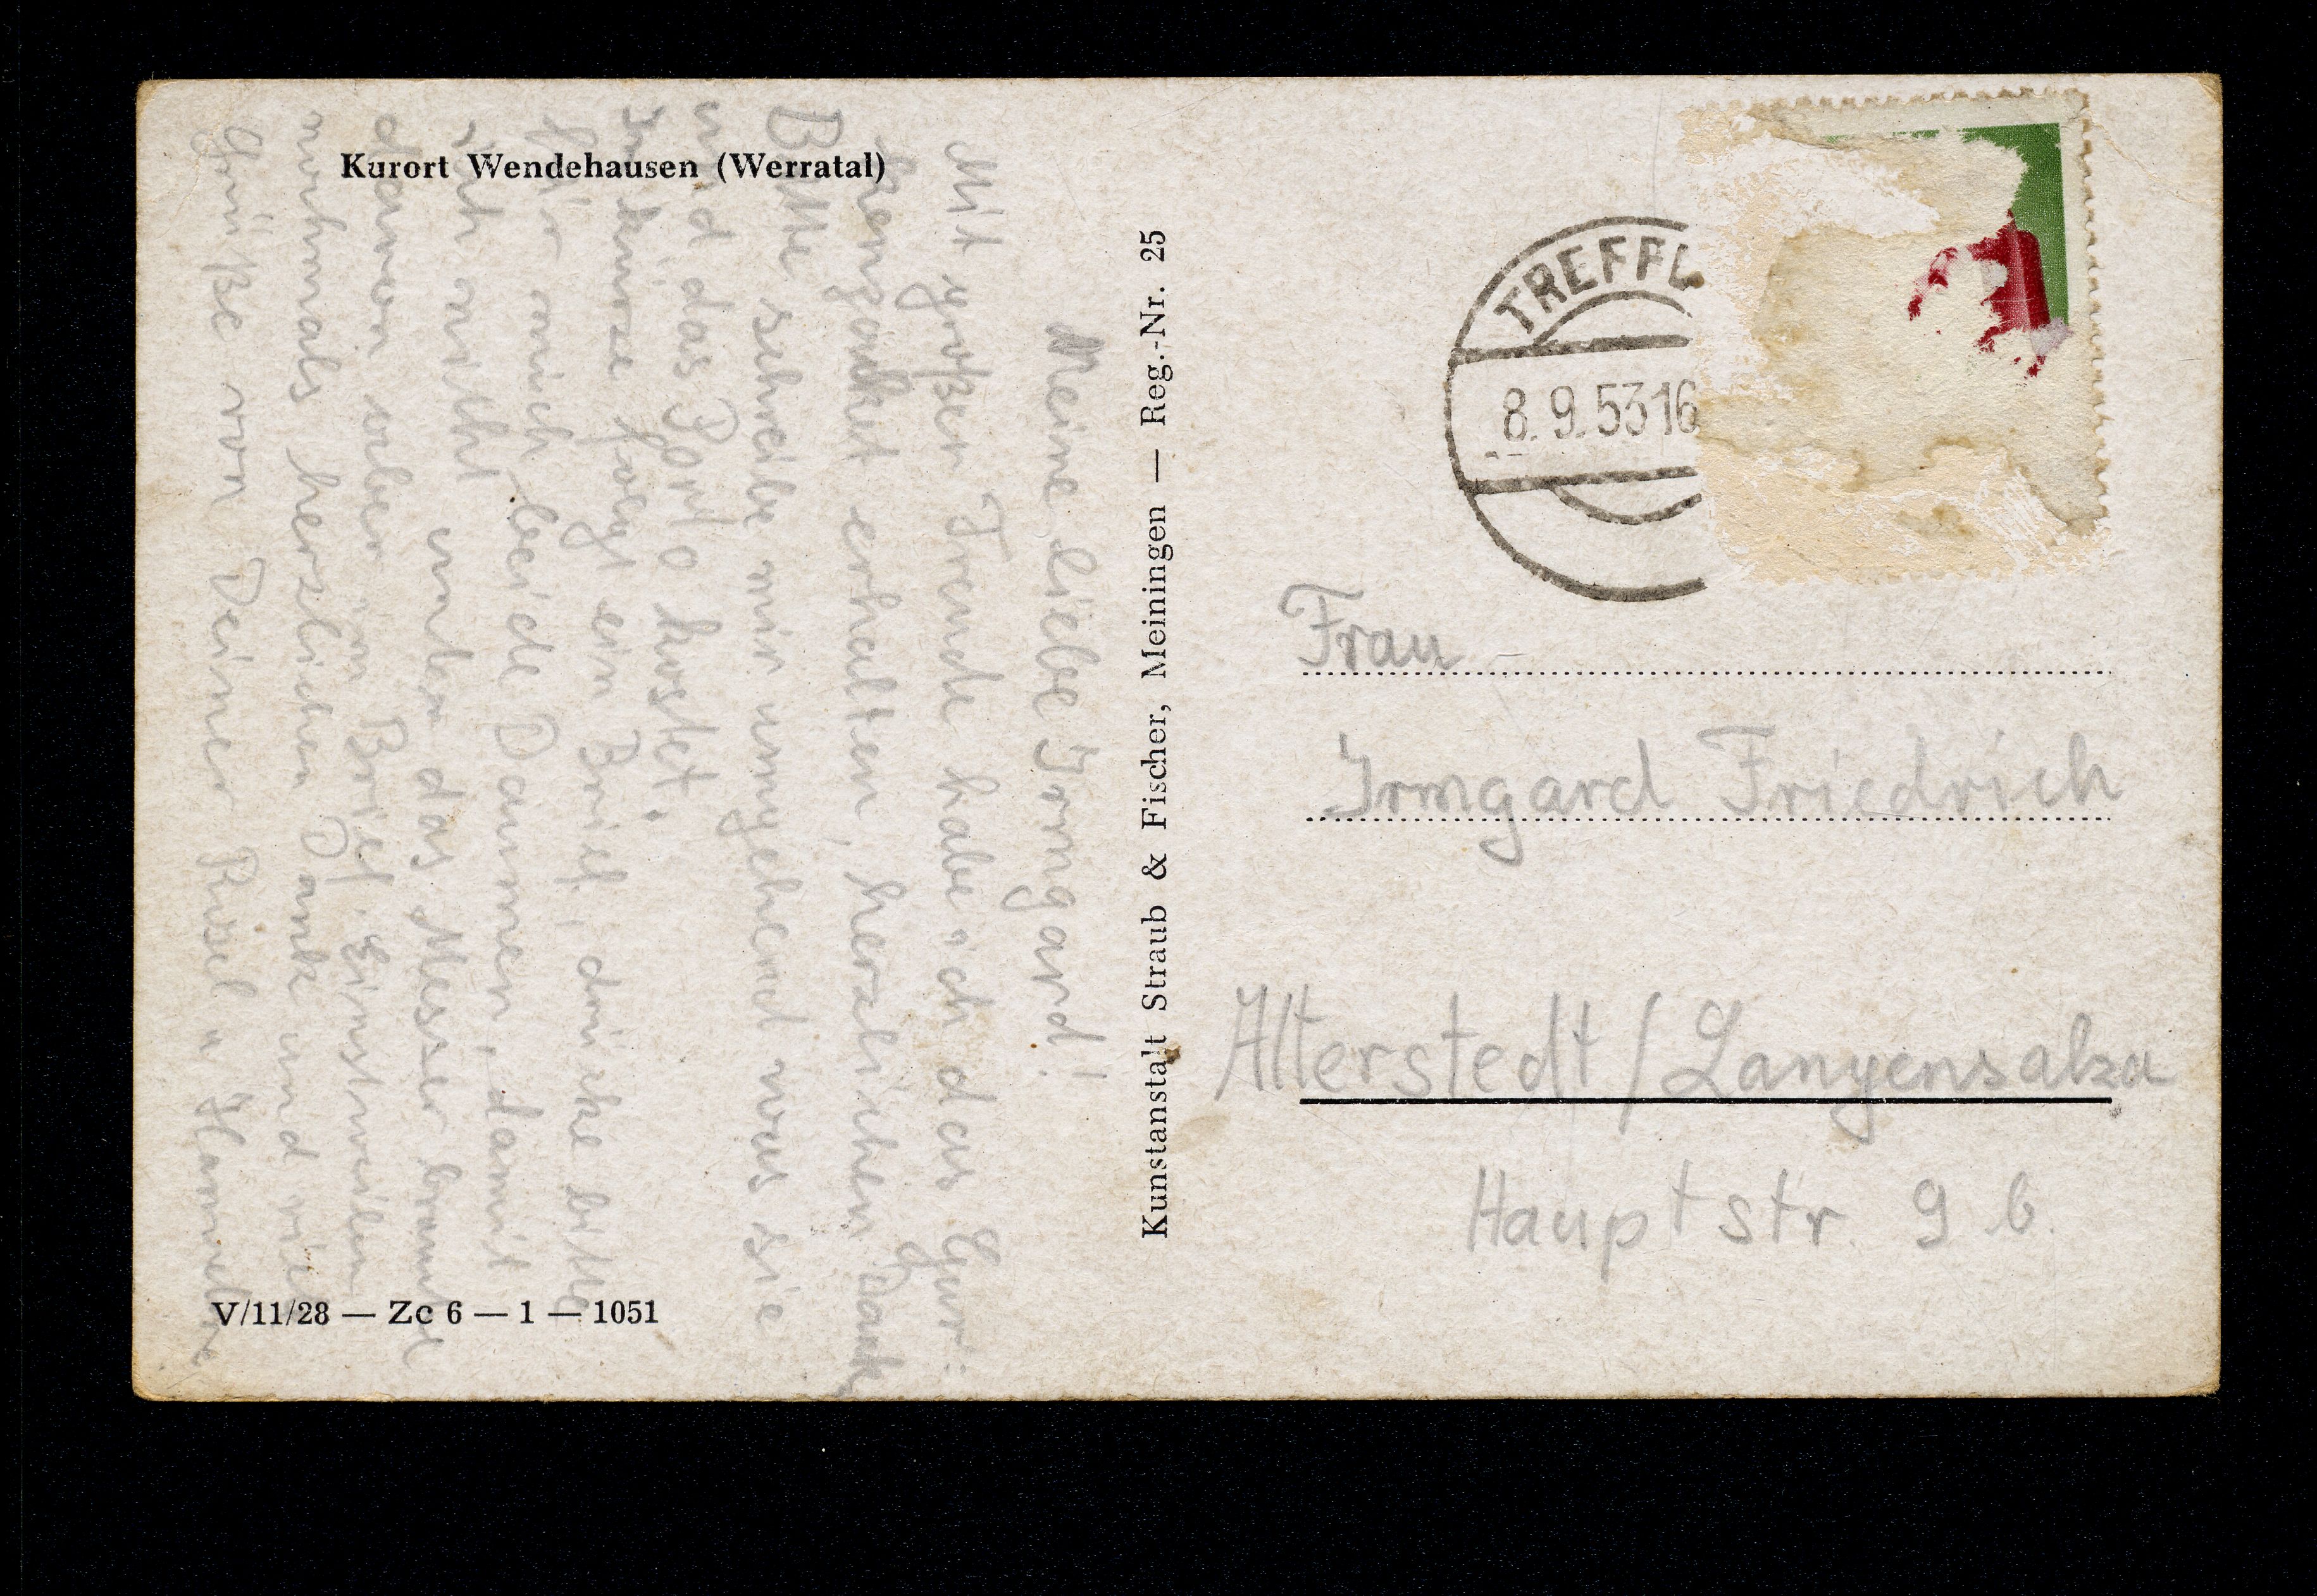 Kurort Wendehausen (Werratal)
Meine liebe Irmgard!
Mit großer Freude habe ich das
erhalten, herzlichen Dank
Bitte schreibe mir umgehend was sie
und das Porto kostet.
In kürze folgt ein Brief, drücke bitte
für mich beide Daumen, damit
ich nicht unter das Messer
davon aber im Brief. Einstweilen
nochmals herzlichen Dank und viele
Grüße von Deiner
V/11/28 — Zc 6 — 1 — 1051
Kunstanstalt Straub & Fischer, Meiningen — Reg.-Nr. 25
TREFFU
8.9.53 16
Frau
Irmgard Friedrich
Alterstedt / Langensalza
Hauptstr. 9 b.